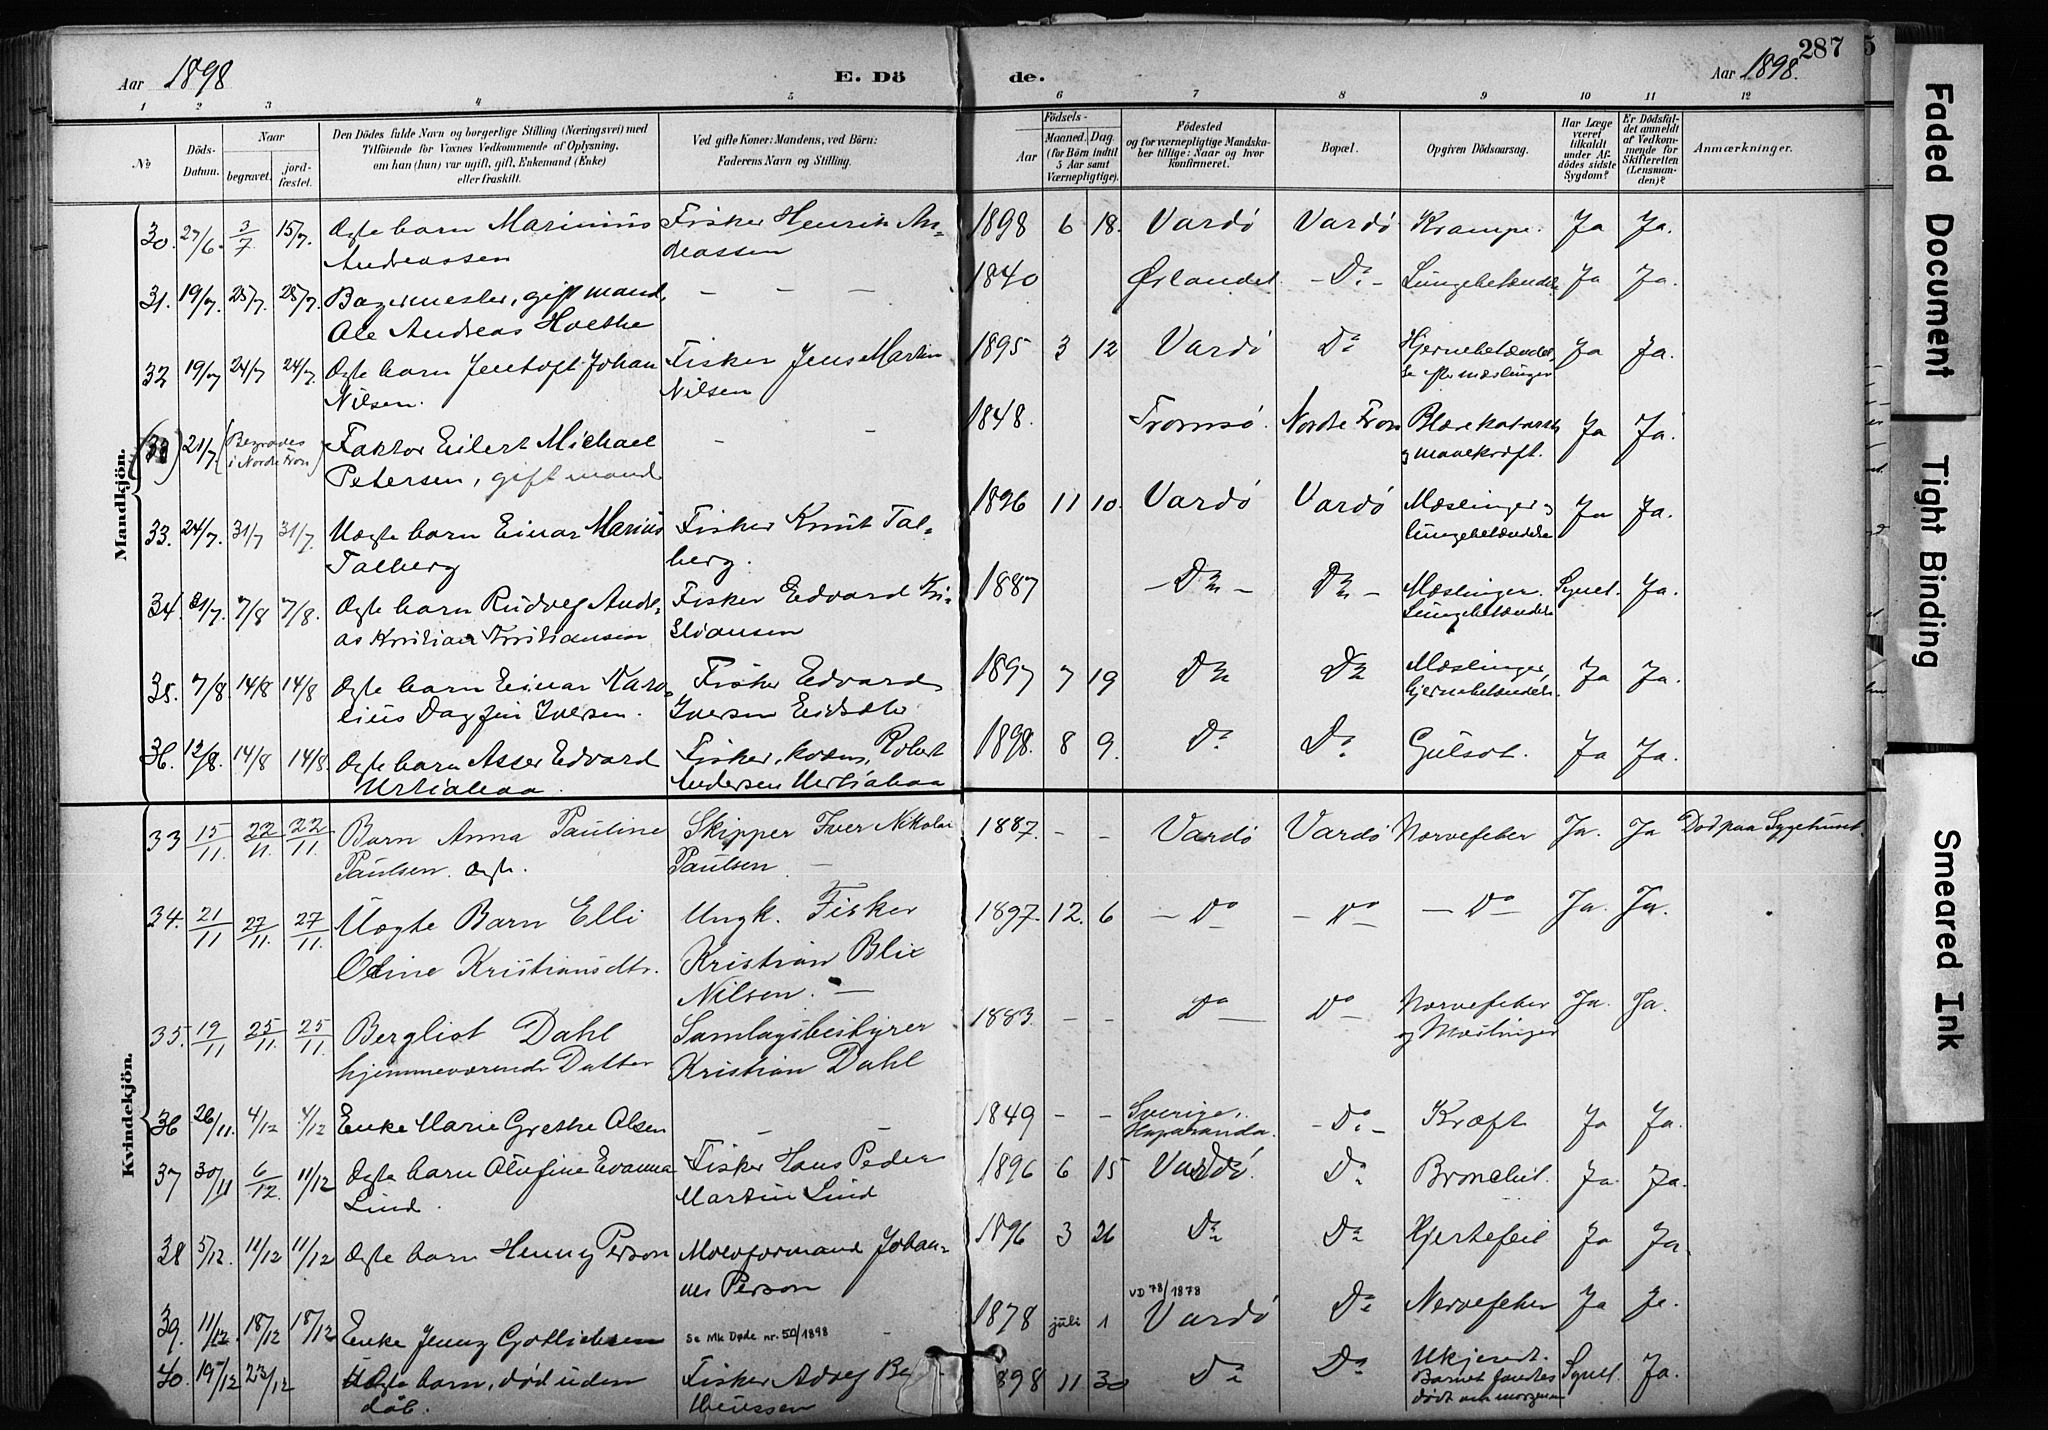 Aar 1898 E. Dö de. Aar 1898. 287 5
1 2 3 4 5 6 7 8 9 10 11 12
№ Döds-Datum. Naar begravet. jordfæstet.
Den Dödes fulde Navn og borgerlige Stilling (Næringsvei) med
Tilföiende for Voxnes Vedkommende af Oplysning,
om han (hun) var ugift, gift, Enkemand (Enke)
eller fraskilt.
Ved gifte Koner: Mandens, ved Börn:
Faderens Navn og Stilling.
Födsels-
Aar Maaned. Dag.
(for Börn indtil
5 Aar samt
Værnepligtige).
Födested
og for værnepligtige Mandskaber tillige: Naar og hvor
konfirmeret.
Bopæl.
Opgiven Dödsaarsag.
Har Læge
været
tilkaldt
under Afdödes sidste
Sygdom?
Er Dödsfaldet anmeldt
af Vedkommende for
Skifteretten
(Lensmanden)?
Anmærkninger.
Mandkjön.
30. 27/6 3/7 15/7. Ægte barn Marinius Fisker Henrik An- 1898 6 18. Vardö Vardö Krampe. Ja Ja.
Andreassen dreassen
31. 19/7. 25/7. 25/7. Bagermester, gift mand, — — — 1840 Ørlandet. - Do - Lungebetændelse Ja Ja.
Ole Andreas Hoethe
32 19/7 24/7 24/7. Ægte barn Jentoft Johan Fisker Jens Martin 1895 3 12 Vardö Do Hjernebetændel- Ja Ja.
Nilsen. Nilsen se efter mæslinger
(33) 21/7. (Begravdes Faktor Eilert Michael — — 1848. Tromsö. Nordre Fron Blærekatarrh Ja Ja.
i Nordre Fron) Petersen, gift mand og mavekræft.
33. 24/7. 31/7 31/7. Uægte barn Einar Marius Fisker Knut Tal- 1896 11 10. Vardö Vardö Mæslinger og Ja Ja.
Talberg berg. lungebetændelse
34. 31/7. 7/8 7/8. Ægte barn Rudolf Andre- Fisker Edvard Kri- 1887 - Do - Do - Mæslinger. Synet. Ja.
as Kristian Kristiansen stiansen Lungebetændelse
35. 7/8. 14/8 14/8 Ægte barn Einar Karo- Fisker Edvard 1897 7 19 Do Do Mæslinger, Ja Ja.
lius Dagfin Iversen. Iversen hjernebetændels.
36. 12/8. 14/8 14/8. Ægte barn Asser Edvard Fisker, kvæn, Robert 1898. 8 9. Do Do Gulsot. Ja Ja.
Andersen
Kvindekjön.
33 15/11. 22/11. 22/11. Barn Anna Pauline Skipper Iver Nikolai 1887. - - Vardö Vardö Nervefeber Ja. Ja Död paa Sygehuset.
Paulsen. Ægte. Paulsen —
34. 21/11 27/11. 27/11. Uægte Barn Elli Ungk. Fisker 1897. 12. 6 - Do - Do - Do Ja. Ja.
Oline Kristiansdtr. Kristian Blix
Nilsen. —
35. 19/11 25/11. 25/11. Berglist Dahl Samlagsbestyrer 1883. - - Do Do Nervefeber Ja. Ja.
hjemmeværende Datter Kristian Dahl og Mæslinger
36 26/11. 4/12 4/12 Enke Marie Grethe Olsen — — 1849 - - Sverige, - Do - Kræft Ja Ja.
Haparanda.
37 30/11 6/12. 11/12 Ægte barn Olufine Evanna Fisker Hans Peder 1896 6 15 Vardö. Do Bronchit. Ja. Ja.
Lind. Martin Lind
38 5/12. 11/12 11/12 Ægte barn Henny Person Moloformand Johan- 1896 3 26 Do Do Hjertefeil Ja Ja.
nes Person
VD 78/1878
39. 11/12 18/12 18/12 Enke Jenny Gotliebsen Se Mk Døde nr. 50/1898 1878 juli 1 Vardö Do Nervefeber Ja Ja.
40. 19/12 23/12 Uægte barn, død uden Fisker Adolf Be- 1898 11 30 Do Do Ukjendt. Synet. Ja.
dåb. Barnet fandtes
dødt om morgenen
Faded Document
Tight Binding
Smeared Ink